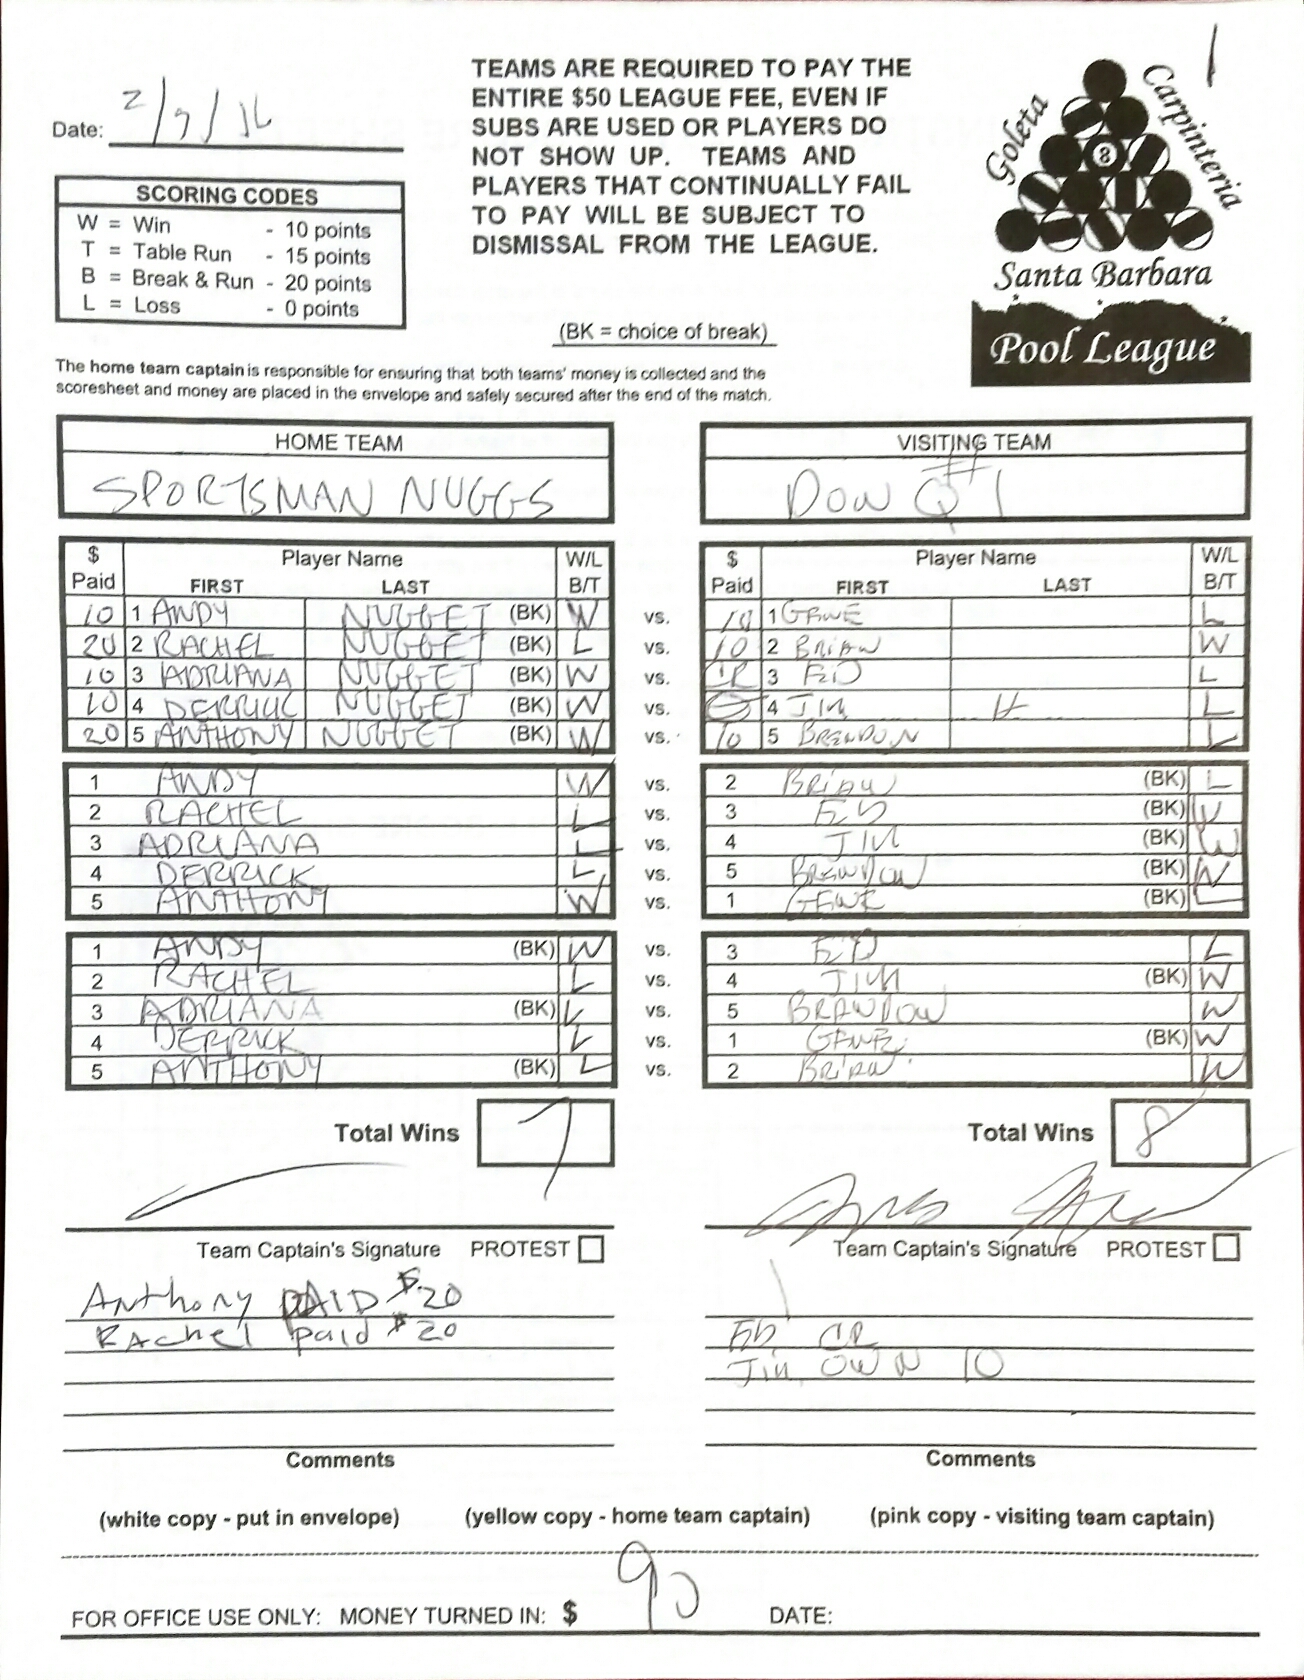 1
Date: 2/9/16
TEAMS ARE REQUIRED TO PAY THE
ENTIRE $50 LEAGUE FEE, EVEN IF
SUBS ARE USED OR PLAYERS DO
NOT SHOW UP. TEAMS AND
PLAYERS THAT CONTINUALLY FAIL
TO PAY WILL BE SUBJECT TO
DISMISSAL FROM THE LEAGUE.
Goleta
Carpinteria
8
Santa Barbara
Pool League
SCORING CODES
W = Win - 10 points
T = Table Run - 15 points
B = Break & Run - 20 points
L = Loss - 0 points
(BK = choice of break)
The home team captain is responsible for ensuring that both teams' money is collected and the
scoresheet and money are placed in the envelope and safely secured after the end of the match.
HOME TEAM VISITING TEAM
SPORTSMAN NUGGS DON Q #1
$ Paid Player Name FIRST LAST W/L B/T $ Paid Player Name FIRST LAST W/L B/T
10 1 ANDY NUGGET (BK) W vs. 10 1 GENE L
20 2 RACHEL NUGGET (BK) L vs. 10 2 BRIAN W
10 3 ADRIANA NUGGET (BK) W vs. CR 3 ED L
10 4 DERRICK NUGGET (BK) W vs. 4 JIM H L
20 5 ANTHONY NUGGET (BK) W vs. 10 5 BRENDON L
1 ANDY W vs. 2 BRIAN (BK) L
2 RACHEL L vs. 3 ED (BK) W
3 ADRIANA L vs. 4 JIM (BK) W
4 DERRICK L vs. 5 BRENDON (BK) W
5 ANTHONY W vs. 1 GENE (BK) L
1 ANDY (BK) W vs. 3 ED L
2 RACHEL L vs. 4 JIM (BK) W
3 ADRIANA (BK) L vs. 5 BRANDON W
4 DERRICK L vs. 1 GENE (BK) W
5 ANTHONY (BK) L vs. 2 BRIAN W
Total Wins 7 Total Wins 8
Team Captain's Signature PROTEST Team Captain's Signature PROTEST
Anthony PAID $20
Rachel paid $20 ED CR
Jim OWN 10
Comments Comments
(white copy - put in envelope) (yellow copy - home team captain) (pink copy - visiting team captain)
FOR OFFICE USE ONLY: MONEY TURNED IN: $ 90 DATE: